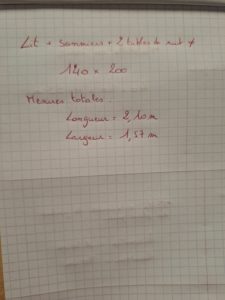 Lit + Sommiers + 2 tables de nuit
140 x 200
Mesures totales.
Longueur = 2,10 m
Largeur = 1,57 m